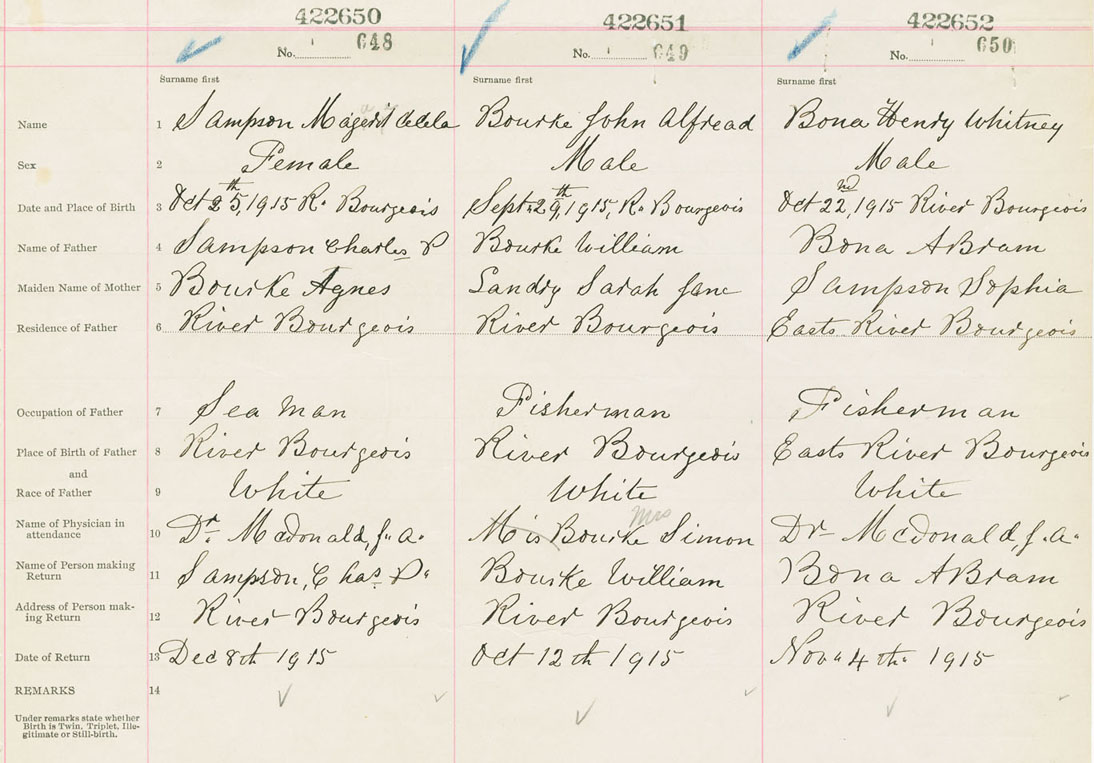 422650 422651 422652
No. 648 No. 649 No. 650
Surname first Surname first Surname first
Name 1 Sampson Cecela Bourke John Alfread Bona Henry Whitney
Sex 2 Female Male Male
Date and Place of Birth 3 Oct 25th, 1915 R. Bourgeois Sept. 29th, 1915, R. Bourgeois Oct 22nd, 1915 River Bourgeois
Name of Father 4 Sampson Charles P Bourke William Bona ABram
Maiden Name of Mother 5 Bourke Agnes Landry Sarah Jane Sampson Sophia
Residence of Father 6 River Bourgeois River Bourgeois Easts River Bourgeois
Occupation of Father 7 Sea Man Fisherman Fisherman
Place of Birth of Father 8 River Bourgeois River Bourgeois Easts River Bourgeois
and
Race of Father 9 White White White
Name of Physician in
attendance 10 Dr. Mcdonald, J. A. Mrs Bourke Simon Dr Mcdonald, J. A.
Name of Person making
Return 11 Sampson, Chas P. Bourke William Bona ABram
Address of Person mak-
ing Return 12 River Bourgeois River Bourgeois River Bourgeois
Date of Return 13 Dec 8th 1915 Oct 12th 1915 Nov. 4th. 1915
REMARKS 14
Under remarks state whether
Birth is Twin, Triplet, Ille-
gitimate or Still-birth.